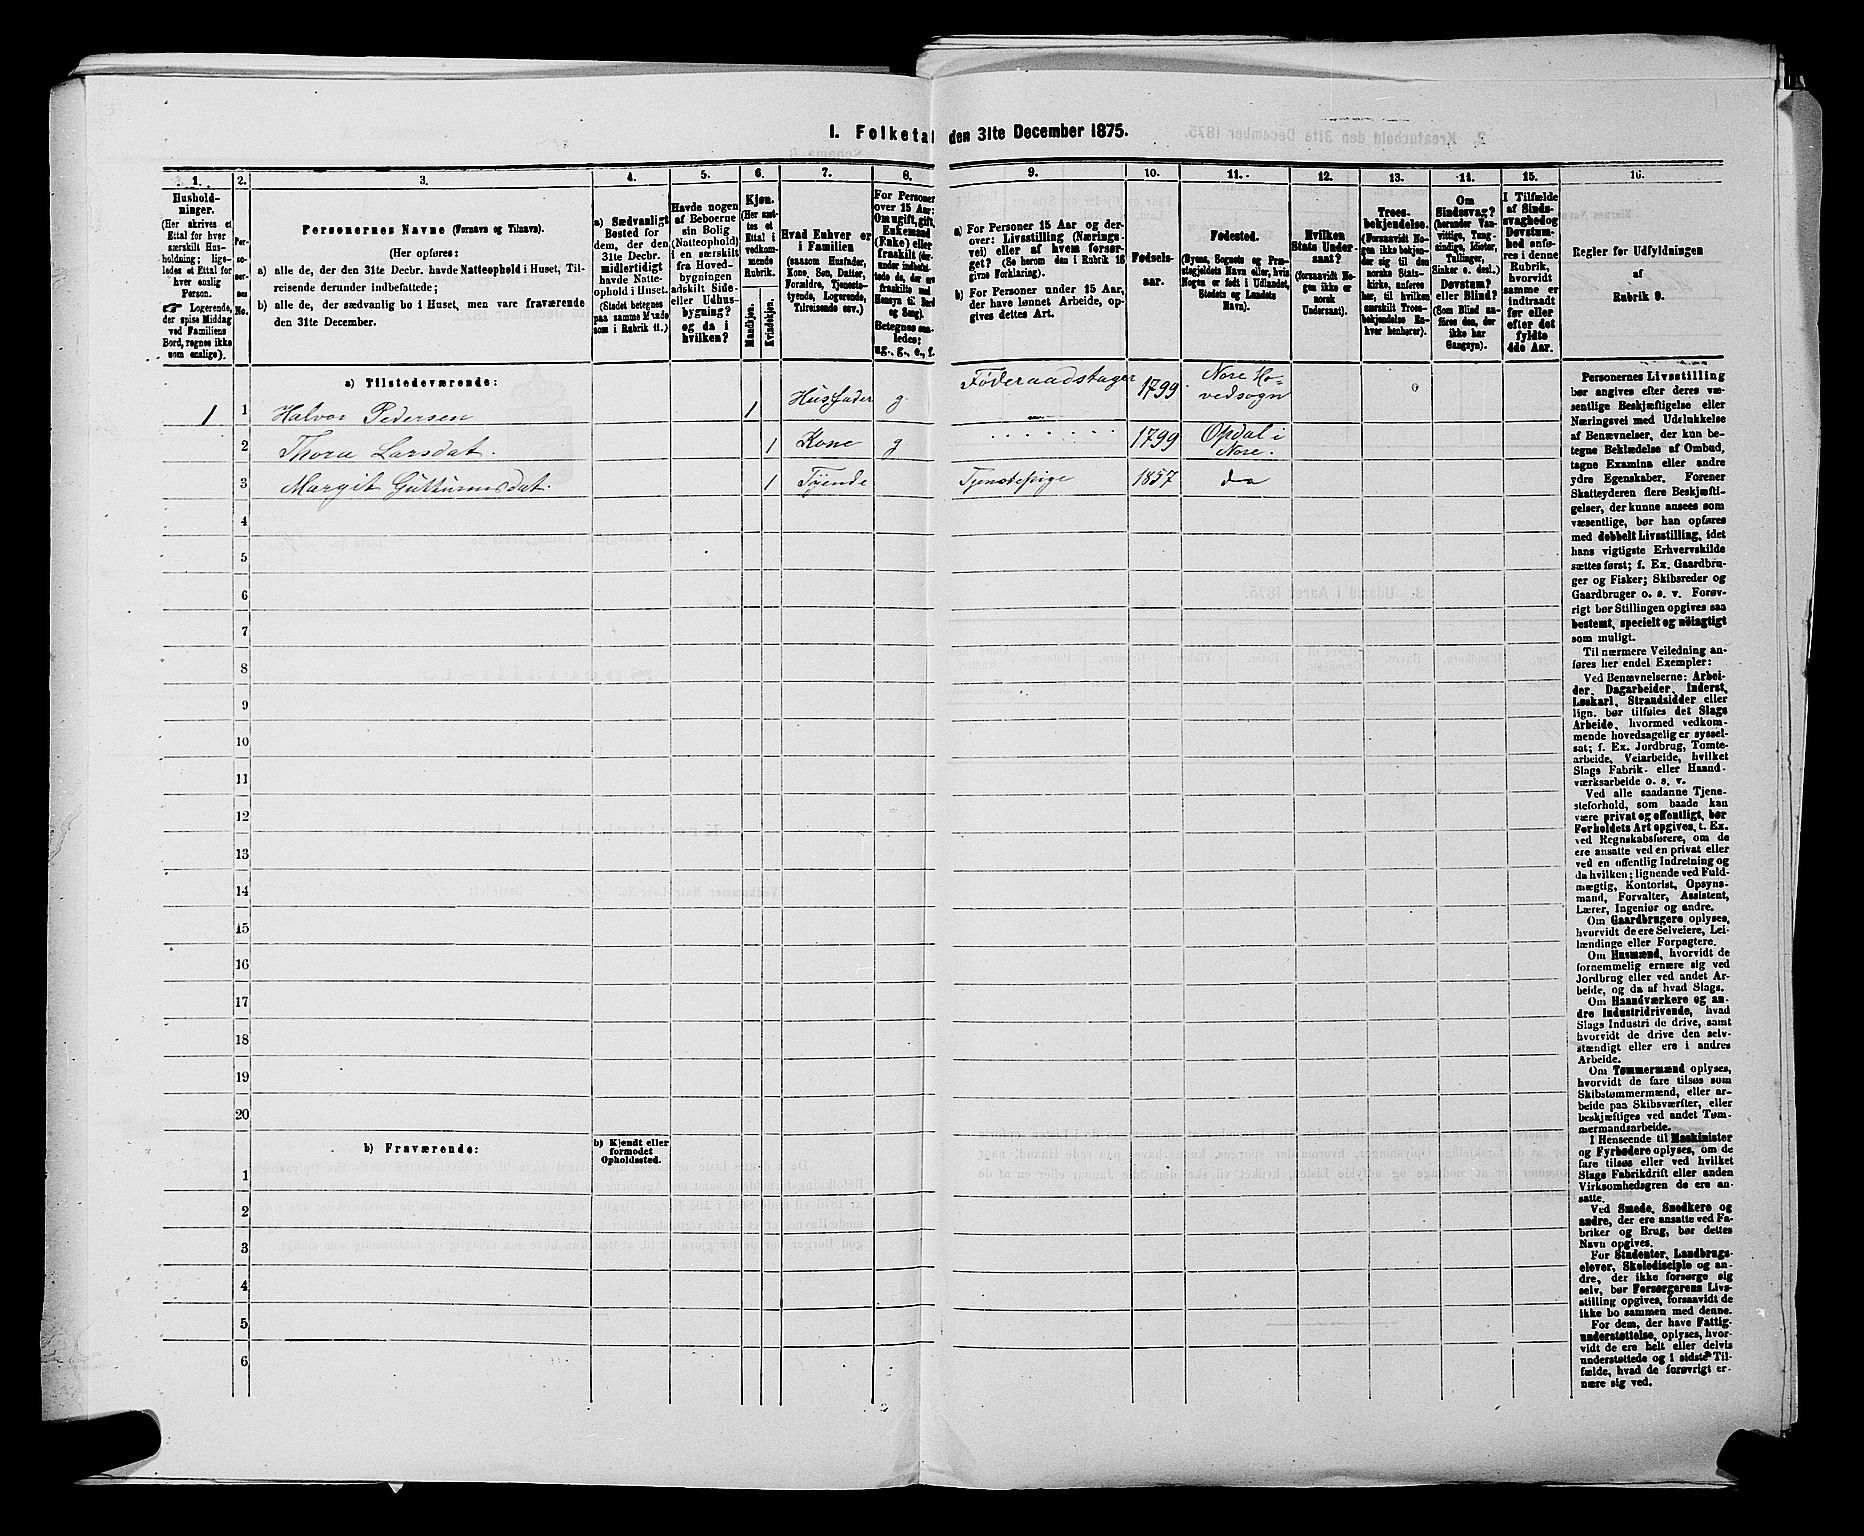 I. Folketal den 31te December 1875.
1. 2. 3. 4. 5. 6. 7. 8. 9. 10. 11. 12. 13. 14. 15. 16.
Hushold-
ninger.
(Her skrives et
Ettal for hver
særskilt Hus-
holdning; lige-
ledes et Ettal for
hver enslig
Person.
☞ Logerende,
der spise Middag
ved Familiens
Bord, regnes ikke
som enslige).
Per-
so-
ner-
nes
No.
Personernes Navne (Fornavn og Tilnavn).
(Her opføres:
a) alle de, der den 31te Decbr. havde Natteophold i Huset, Til-
reisende derunder indbefattede;
b) alle de, der sædvanlig bo i Huset, men vare fraværende
den 31te December.
a) Sædvanligt
Bosted for
dem, der den
31te Decbr.
midlertidigt
havde Natte-
ophold i Huset.
(Stedet betegnes
paa samme Maade
som i Rubrik 11.)
Havde nogen
af Beboerne
sin Bolig
(Natteophold)
i en særskilt
fra Hoved-
bygningen
adskilt Side-
eller Udhus-
bygning?
og da i
hvilken?
Kjøn.
(Her sæt-
tes et
Ettal i
vedkom-
mende
Rubrik.
Mandkjøn.
Kvindekjøn.
Hvad Enhver er
i Familien
(saasom Husfader,
Kone, Søn, Datter,
Forældre, Tjeneste-
tyende, Logerende,
Tilreisende osv.)
For Personer
over 15 Aar:
Om ugift, gift,
Enkemand
(Enke) eller
fraskilt
Betegnes saa-
ledes:
ug., g., e., f.
a) For Personer 15 Aar og der-
over: Livsstilling (Nærings-
vei) eller af hvem forsør-
get? (Se herom den i Rubrik 16
givne Forklaring).
b) For Personer under 15 Aar,
der have lønnet Arbeide, op-
gives dettes Art.
Fødsels-
aar.
Fødested.
(Byens, Sognets og Præ-
stegjeldets Navn eller, hvis
Nogen er født i Udlandet,
Stedets og Landets
Navn).
Hvilken
Stats Under-
saat?
(forsaavidt No-
gen ikke er
norsk
Undersaat).
Troes-
bekjendelse.
(Forsaavidt No-
gen ikke bekjen-
der sig til den
norske Stats-
kirke, anføres
her, til hvilken
særskilt Troes-
bekjendelse En-
hver henhører).
Om
Sindssvag?
(herunder Van-
vittige, Tung-
sindige, Idioter,
Tullinger,
Sinker o. desl.)
Døvstum?
eller Blind?
(Som Blind an-
føres den, der
ikke har
Gangsyn).
I Tilfælde
af Sinds-
svaghed og
Døvstum-
hed anfø-
res i denne
Rubrik,
hvorvidt
samme er
indtraadt
før eller
efter det
fyldte
4de Aar.
Regler for Udfyldningen
af
Rubrik 9.
a) Tilstedeværende:
1 1 Halvor Pedersen 1 Husfader g Føderaadstager 1799 Nore Ho=
vedsogn
2 Thora Larsdat. 1 Kone g 1799 Opdal i
Nore.
3 Margit Gutturmsdat. 1 Tyende Tjenestepige 1857 do
4
5
6
7
8
9
10
11
12
13
14
15
16
17
18
19
20
b) Fraværende:
b) Kjendt eller
formodet
Opholdssted.
1
2
3
4
5
6
Personernes Livsstilling
bør angives efter deres væ-
sentlige Beskjæftigelse eller
Næringsvei med Udelukkelse
af Benævnelser, der kun be-
tegne Beklædelse af Ombud,
tagne Examina eller andre
ydre Egenskaber. Forener
Skatteyderen flere Beskjæfti-
gelser, der kunne ansees som
væsentlige, bør han opføres
med dobbelt Livsstilling, idet
hans vigtigste Erhvervskilde
sættes først; f. Ex. Gaardbru-
ger og Fisker; Skibsreder og
Gaardbruger o. s. v. Forøv-
rigt bør Stillingen opgives saa
bestemt, specielt og nøiagtigt
som muligt.
Til nærmere Veiledning an-
føres her endel Exempler:
Ved Benævnelserne: Arbei-
der, Dagarbeider, Inderst,
Løskarl, Strandsidder eller
lign. bør tilføies det Slags
Arbeide, hvormed vedkom-
mende hovedsagelig er syssel-
sat; f. Ex. Jordbrug, Tomte-
arbeide, Veiarbeide, hvilket
Slags Fabrik- eller Haand-
værksarbeide o. s. v.
Ved alle saadanne Tjene-
steforhold, som baade kan
være privat og offentligt, bør
Forholdets Art opgives, t. Ex.
ved Regnskabsførere, om de
ere ansatte ved en privat eller
ved en offentlig Indretning og
da hvilken; lignende ved Fuld-
mægtig, Kontorist, Opsyns-
mand, Forvalter, Assistent,
Lærer, Ingeniør og andre.
Om Gaardbrugere oplyses,
hvorvidt de ere Selveiere, Lei-
lændinge eller Forpagtere.
Om Husmænd, hvorvidt de
fornemmelig ernære sig ved
Jordbrug eller ved andet Ar-
beide, og da af hvad Slags.
Om Haandværkere og an-
dre Industridrivende, hvad
Slags Industri de drive, samt
hvorvidt de drive den selv-
stændigt eller ere i andres
Arbeide.
Om Tømmermænd oplyses,
hvorvidt de fare tilsøs som
Skibstømmermænd, eller ar-
beide paa Skibsværfter, eller
beskjæftiges ved andet Tøm-
mermandsarbeide.
I Henseende til Maskinister
og Fyrbødere oplyses, om de
fare tilsøs eller ved hvilket
Slags Fabrikdrift eller anden
Virksomhedsgren de ere an-
satte.
Ved Smede, Snedkere og
andre, der ere ansatte ved Fa-
briker og Brug, bør dettes
Navn opgives.
For Studenter, Landbrugs-
elever, Skoledisciple og an-
dre, der ikke forsørge sig
selv, bør Forsørgerens Livs-
stilling opgives, forsaavidt de
ikke bo sammen med denne.
For dem, der have Fattig-
understøttelse, oplyses, hvor-
vidt de ere helt eller delvis
understøttede og i sidste Til-
fælde, hvad de forøvrigt er-
nære sig ved.